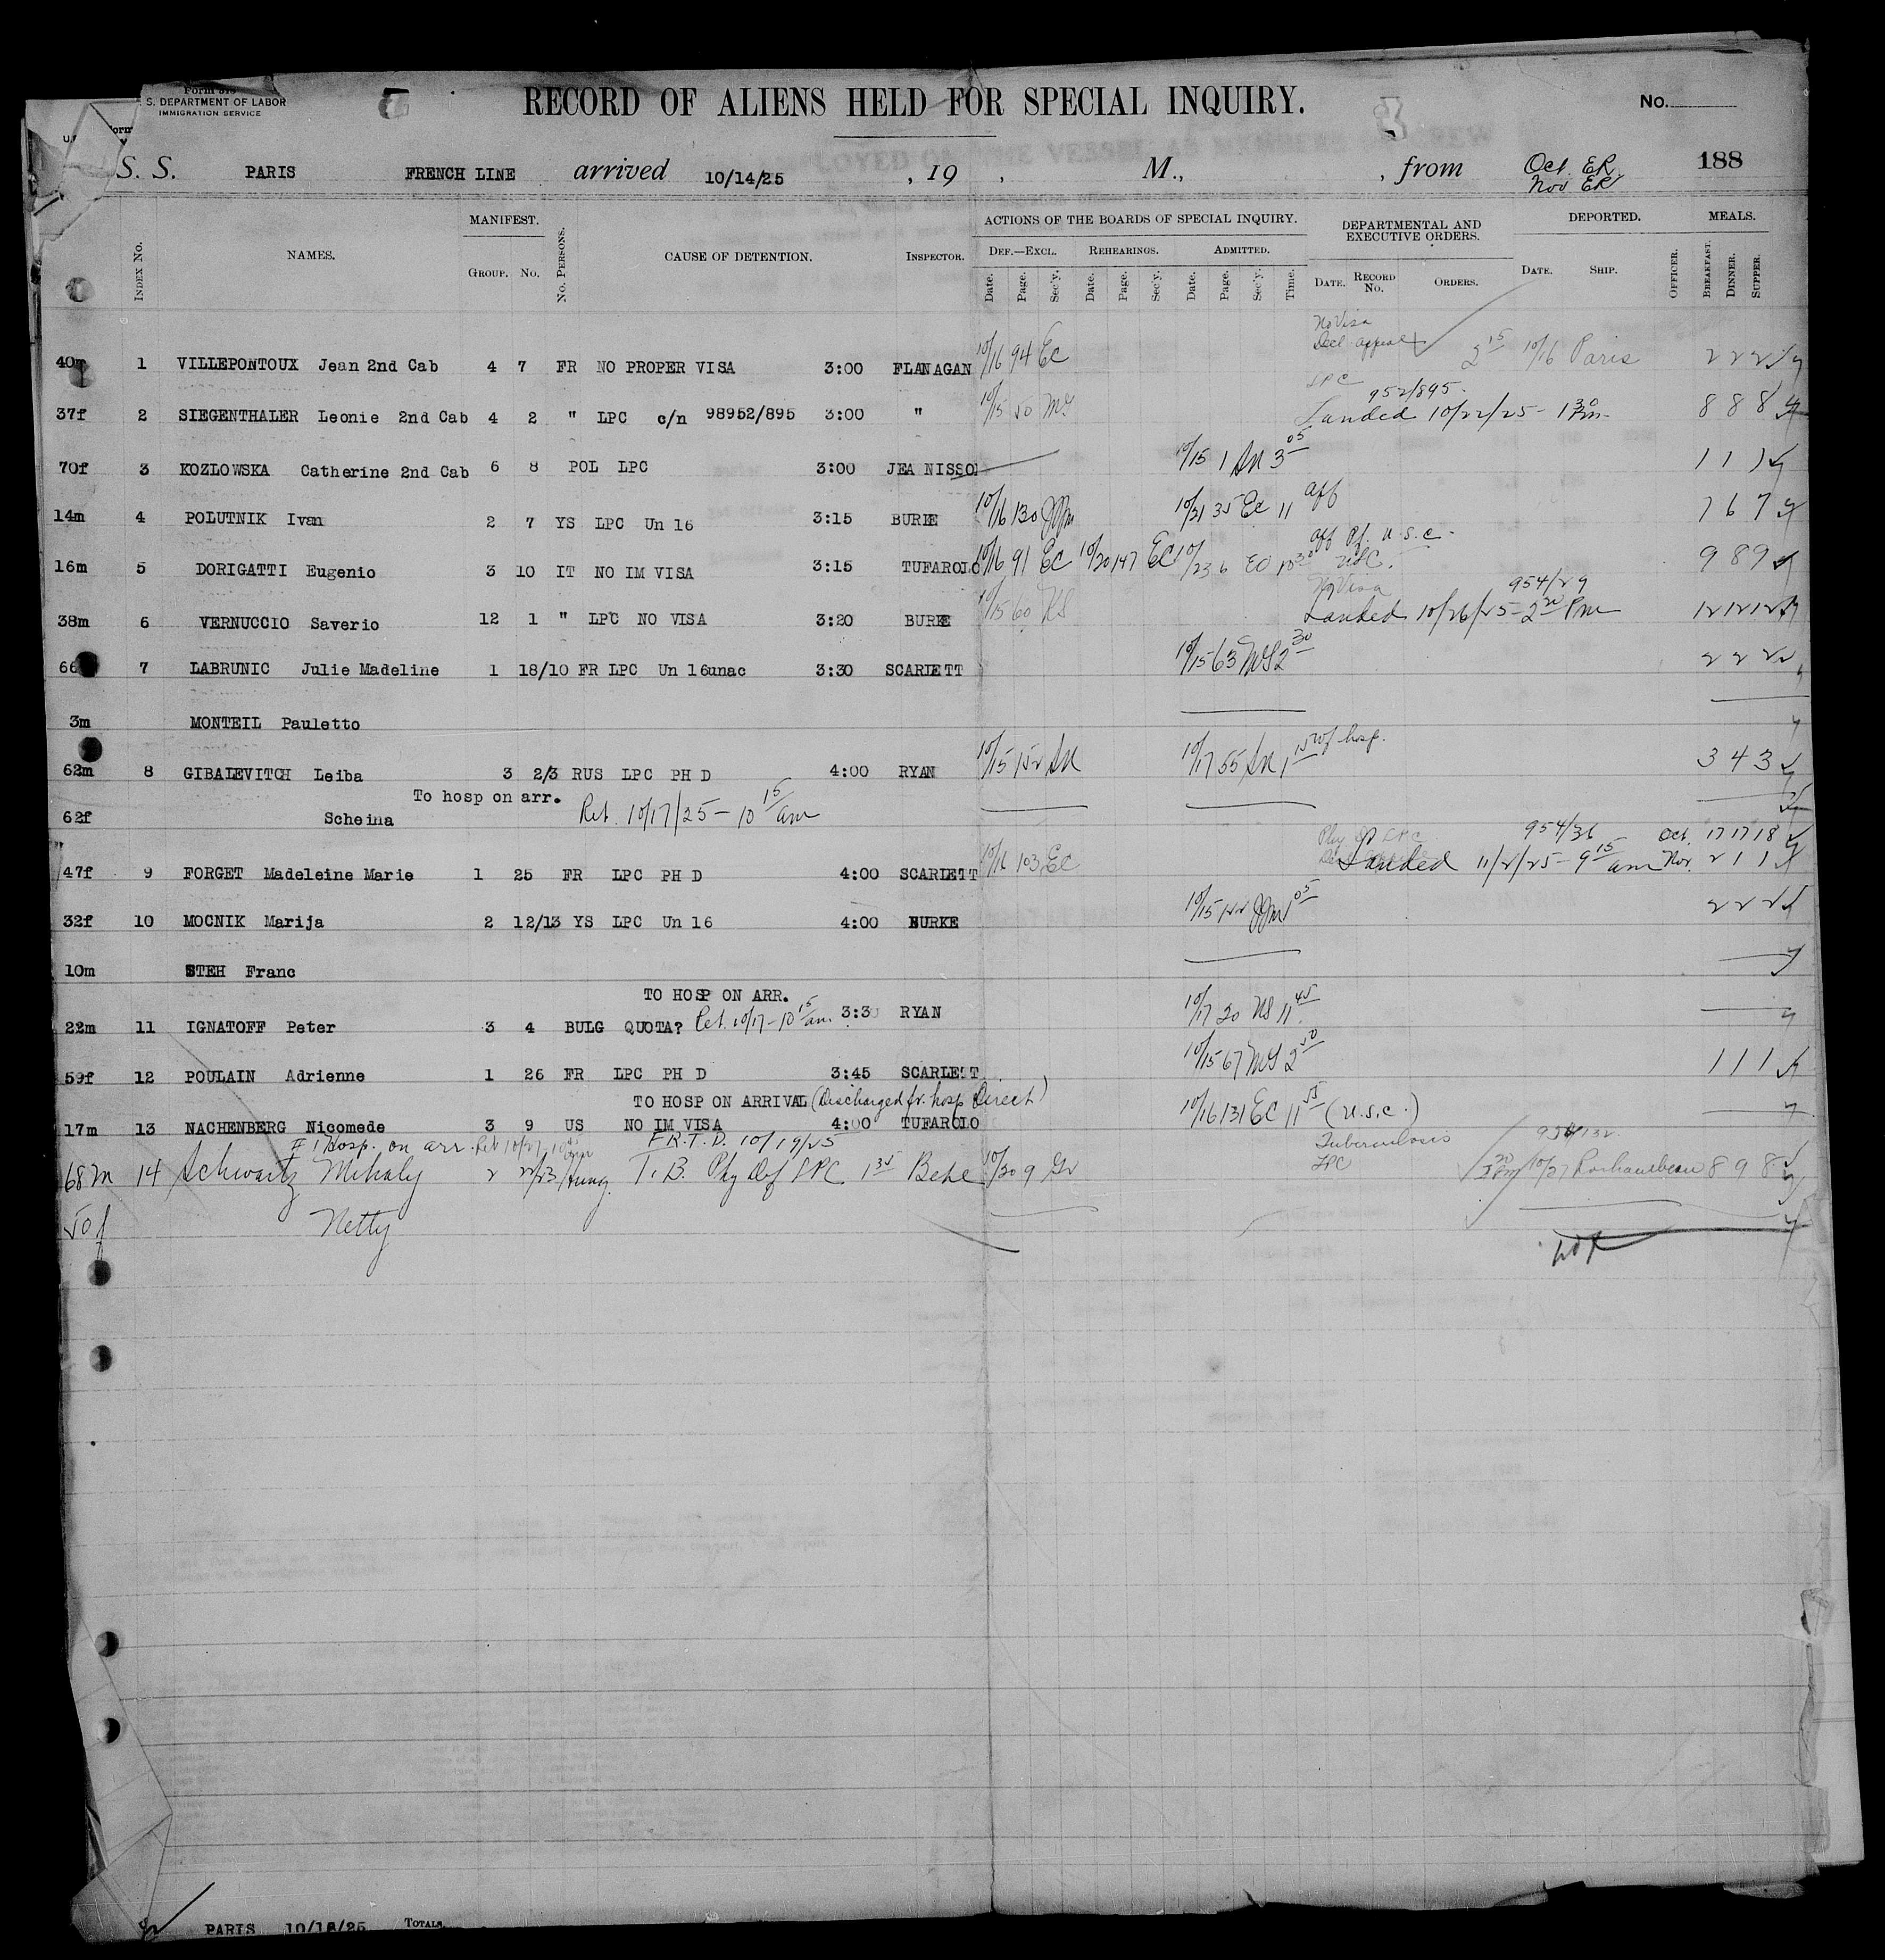 Form
S. DEPARTMENT OF LABOR
IMMIGRATION SERVICE
RECORD OF ALIENS HELD FOR SPECIAL INQUIRY.
No.
S. S. PARIS FRENCH LINE arrived 10/14/25 , 19 , M., , from Oct. ER. 188
Nov ER
INDEX No. NAMES. MANIFEST. GROUP. No. No. PERSONS. CAUSE OF DETENTION. INSPECTOR. ACTIONS OF THE BOARDS OF SPECIAL INQUIRY. DEF.—EXCL. REHEARINGS. ADMITTED. Date. Page. Sec'y. Date. Page. Sec'y. Date. Page. Sec'y. Time. DEPARTMENTAL AND EXECUTIVE ORDERS. DATE. RECORD No. ORDERS. DEPORTED. DATE. SHIP. OFFICER. MEALS. BREAKFAST. DINNER. SUPPER.
No Visa
Decl appeal
40m 1 VILLEPONTOUX Jean 2nd Cab 4 7 FR NO PROPER VISA 3:00 FLANAGAN 10/16 94 EC 2 15 10/16 Paris 2 2 2
LPC 952/895
37f 2 SIEGENTHALER Leonie 2nd Cab 4 2 " LPC c/n 98952/895 3:00 " 10/15 50 MS Landed 10/22/25 - 1 30 pm 8 8 8
70f 3 KOZLOWSKA Catherine 2nd Cab 6 8 POL LPC 3:00 JEA NISSON 10/15 1 3 05 1 1 1
14m 4 POLUTNIK Ivan 2 7 YS LPC Un 16 3:15 BURKE 10/16 130 10/21 35 EC 11 aff 7 6 7
aff U.S.C.
16m 5 DORIGATTI Eugenio 3 10 IT NO IM VISA 3:15 TUFAROLO 10/16 91 EC 10/20 147 EC 10/23 6 EC 10 30 9 8 9
No Visa 954/29
38m 6 VERNUCCIO Saverio 12 1 " LPC NO VISA 3:20 BURKE 10/15 60 NS Landed 10/26/25 - 2 20 Pm 12 12 12
66 7 LABRUNIC Julie Madeline 1 18/10 FR LPC Un 16unac 3:30 SCARLETT 10/15 63 MS 2 30 2 2 2
3m MONTEIL Pauletto
62m 8 GIBALEVITCH Leiba 3 2/3 RUS LPC PH D 4:00 RYAN 10/15 152 10/17 55 1 15 hosp. 3 4 3
To hosp on arr. Ret. 10/17/25 - 10 15 am
62f Scheina
954/36 Oct. 17 17 18
47f 9 FORGET Madeleine Marie 1 25 FR LPC PH D 4:00 SCARLETT 10/16 103 EC Landed 11/2/25 - 9 15 am Nov. 2 1 1
32f 10 MOCNIK Marija 2 12/13 YS LPC Un 16 4:00 BURKE 10/15 122 1 05 2 2 2
10m STEH Franc
TO HOSP ON ARR.
22m 11 IGNATOFF Peter 3 4 BULG QUOTA? Ret. 10/17 - 10 15 am 3:30 RYAN 10/17 20 NS 11 45
59f 12 POULAIN Adrienne 1 26 FR LPC PH D 3:45 SCARLETT 10/15 67 MS 2 50 1 1 1
TO HOSP ON ARRIVAL (Discharged fr. hosp Direct)
17m 13 NACHENBERG Nicomede 3 9 US NO IM VISA 4:00 TUFAROLO 10/16 131 EC 11 55 (U.S.C.)
# 1 Hosp. on arr. Ret 10/27 F.R.T.D. 10/19/25 Tuberculosis
LPC
68m 14 Schwartz Mihaly 2 22/23 Hung. T.B. Phy Def LPC 1 35 Behe 10/20 9 Gr 10/27 Rochambeau 8 9 8
50f Netty
PARIS 10/15/25 TOTALS